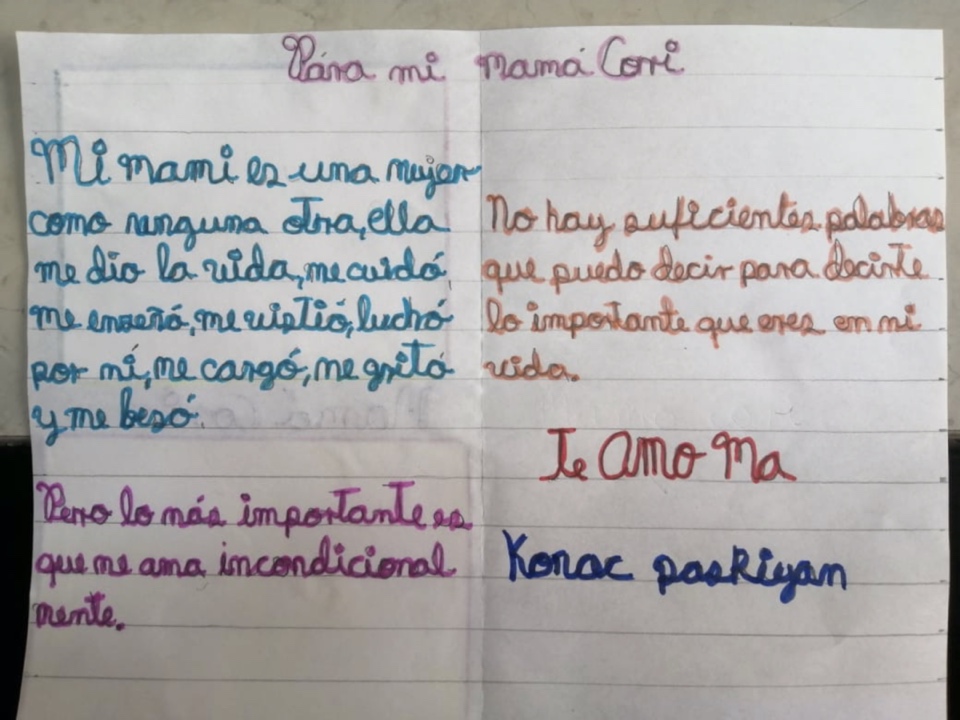 Pára mi mamá Corri
Mi mami es una mujer
como ninguna otra, ella
me dio la vida, me cuidó,
me enseñó, me vistió, luchó
por mí, me cargó, me gritó
y me besó.
Pero lo más importante es
que me ama incondicional
mente.
No hay suficientes palabras
que puedo decir para decirte
lo importante que eres en mi
vida.
Te amo Ma
Korac pasKiyan